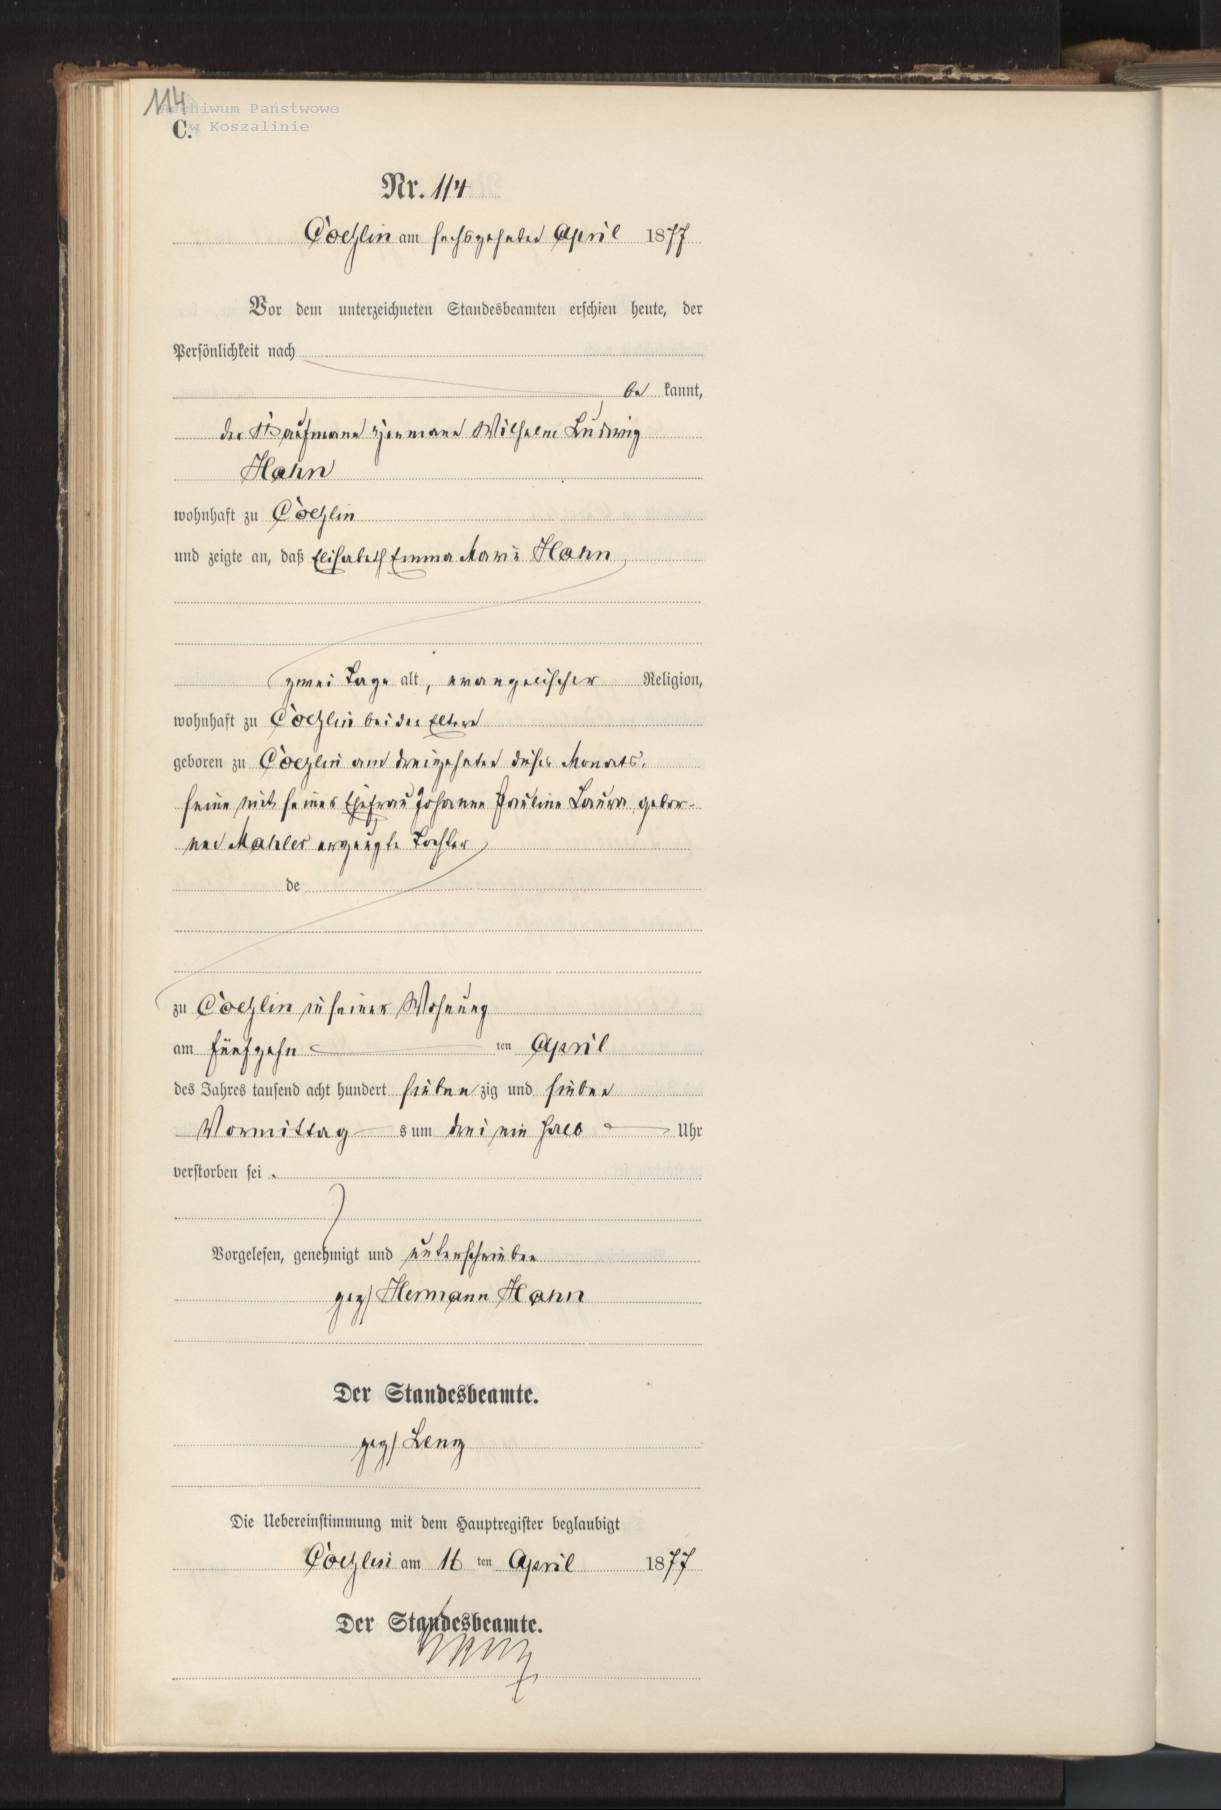 114
Archiwum Państwowe
w Koszalinie
C.
Nr. 114
Coeslin am sechszehnten April 1877
Vor dem unterzeichneten Standesbeamten erschien heute, der
Persönlichkeit nach
be kannt,
der Kaufmann Hermann Wilhelm Ludwig
Hahn
wohnhaft zu Coeslin
und zeigte an, daß Elisabeth Emma Marie Hahn
zwei Tage alt, evangelischer Religion,
wohnhaft zu Coeslin bei den Eltern
geboren zu Coeslin am dreizehnten dieses Monats,
seine mit seiner Ehefrau Johanne Pauline Laura gebor-
nen Mahler erzeugte Tochter
de
zu Coeslin in seiner Wohnung
am fünfzehn ten April
des Jahres tausend acht hundert sieben zig und sieben
Vormittag s um drei ein halb Uhr
verstorben sei.
Vorgelesen, genehmigt und unterschrieben
gez/ Hermann Hahn
Der Standesbeamte.
gez/ Lenz
Die Uebereinstimmung mit dem Hauptregister beglaubigt
Coeslin am 16 ten April 1877
Der Standesbeamte.
Lenz